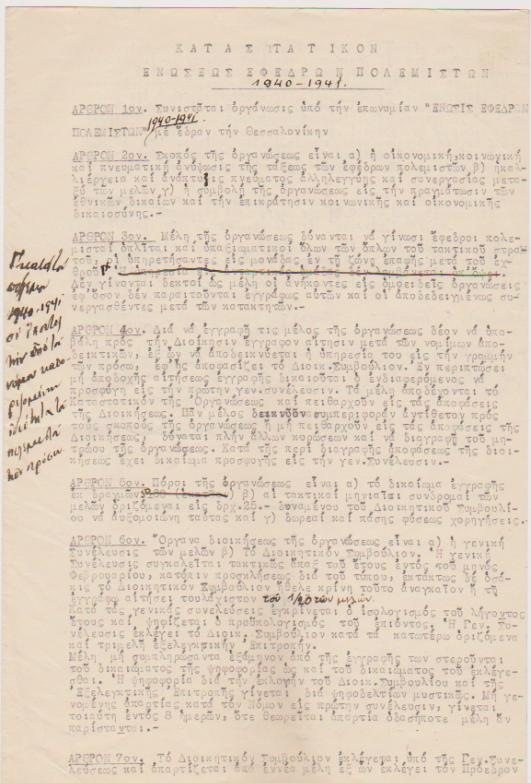 ΚΑΤΑΣΤΑΤΙΚΟΝ
ΕΝΩΣΕΩΣ ΕΦΕΔΡΩΝ ΠΟΛΕΜΙΣΤΩΝ
1940-1941.
ΑΡΘΡΟΝ 1ον. Συνιστᾶται ὀργάνωσις ὑπό τήν ἐπωνυμίαν "ΕΝΩΣΙΣ ΕΦΕΔΡΩΝ
1940-1941
ΠΟΛΕΜΙΣΤΩΝ" μέ ἕδραν τήν Θεσσαλονίκην
ΑΡΘΡΟΝ 2ον. Σκοπός τῆς ὀργανώσεως εἶναι α) ἡ οἰκονομική, κοινωνική
καί πνευματική ἐνύψωσις τῆς τάξεως τῶν ἐφέδρων πολεμιστῶν β) ἡ καλ-
λιέργεια καί ἀνάπτυξις πνεύματος ἀλληλεγγύης καί συνεργασίας μετα-
ξύ τῶν μελῶν γ) ἡ συμβολή τῆς ὀργανώσεως εἰς τήν πραγμάτωσιν τῶν
ἐθνικῶν δικαίων καί τήν ἐπικράτησιν κοινωνικῆς καί οἰκονομικῆς
δικαιοσύνης.-
ΑΡΘΡΟΝ 3ον. Μέλη τῆς ὀργανώσεως δύνανται νά γίνωσι ἔφεδροι πολε-
μισταί ὁπλῖται καί ὑπαξιωματικοί ὅλων τῶν ὅπλων τοῦ τακτικοῦ στρα-
τοῦ, οἱ ὑπηρετήσαντες εἰς μονάδας ἐν τῇ ζώνῃ ἐπαφῆς μετά τοῦ ἐχ-
θροῦ
Δέν γίνονται δεκτοί ὡς μέλη οἱ ἀνήκοντες εἰς ὁμοειδεῖς ὀργανώσεις
ἐφ' ὅσον δέν παραιτοῦνται ἐγγράφως αὐτῶν καί οἱ ἀποδεδειγμένως συ-
νεργασθέντες μετά τῶν κατακτητῶν.
1940-1941
ΑΡΘΡΟΝ 4ον. Διά νά ἐγγραφῇ τις μέλος τῆς ὀργανώσεως δέον νά ὑπο-
βάλῃ πρός τήν Διοίκησιν ἔγγραφον αἴτησιν μετά τῶν νομίμων ἀπο-
δεικτικῶν, ἐξ ὧν νά ἀποδεικνύεται ἡ ὑπηρεσία του εἰς τήν γραμμήν
τῶν πρόσω, ἐφ' ἧς ἀποφασίζει τό Διοικ. Συμβούλιον. Ἐν περιπτώσει
μή ἀποδοχῆς αἰτήσεως ἐγγραφῆς δικαιοῦται ὁ ἐνδιαφερόμενος νά
προσφύγῃ εἰς τήν πρώτην γεν. συνέλευσιν. Τά μέλη ἀποδέχονται τό
Καταστατικόν τῆς Ὀργανώσεως καί πειθαρχοῦν εἰς τάς ἀποφάσεις
τῆς Διοικήσεως. Πᾶν μέλος δεικνῦον συμπεριφοράν ἀντίθετον πρός
τούς σκοπούς τῆς ὀργανώσεως ἤ μή πειθαρχοῦν εἰς τάς ἀποφάσεις τῆς
Διοικήσεως, δύναται πλήν ἄλλων κυρώσεων καί νά διαγραφῇ τοῦ μη-
τρώου τῆς ὀργανώσεως. Κατά τῆς περί διαγραφῆς ἀποφάσεως τῆς διοι-
κήσεως ἔχει δικαίωμα προσφυγῆς εἰς τήν γεν. Συνέλευσιν.-
ΑΡΘΡΟΝ 5ον. Πόροι τῆς ὀργανώσεως εἶναι α) τό δικαίωμα ἐγγραφῆς
ἐκ δραχμῶν 50 β) αἱ τακτικαί μηνιαῖαι συνδρομαί τῶν
μελῶν ὁριζόμεναι εἰς δρχ. 25.- δυναμένου τοῦ Διοικητικοῦ Συμβουλί-
ου νά αὐξομοιώνῃ ταύτας καί γ) δωρεαί καί πάσης φύσεως χορηγήσεις.
ΑΡΘΡΟΝ 6ον. Ὄργανα διοικήσεως τῆς ὀργανώσεως εἶναι α) ἡ γενική
Συνέλευσις τῶν μελῶν β) Τό Διοικητικόν Συμβούλιον. Ἡ γενική
Συνέλευσις συγκαλεῖται τακτικῶς ἅπαξ τοῦ ἔτους ἐντός τοῦ μηνός
Φεβρουαρίου, κατόπιν προσκλήσεως διά τοῦ τύπου, ἐκτάκτως δέ ὁσά-
κις τό Διοικητικόν Συμβούλιον ἤθελε κρίνῃ τοῦτο ἀναγκαῖον ἤ τῇ
ἐγγράφῳ αἰτήσει τοὐλάχιστον τοῦ 1/20 τῶν μελῶν.
Κατά τάς γενικάς συνελεύσεις ἐγκρίνεται ὁ ἰσολογισμός τοῦ λήγοντος
ἔτους καί ψηφίζεται ὁ προϋπολογισμός τοῦ ἐπιόντος. Ἡ Γεν. Συ-
νέλευσις ἐκλέγει τό Διοικ. Συμβούλιον κατά τά κατωτέρω ὁριζόμενα
καί τριμελῆ ἐξελεγκτικήν Ἐπιτροπήν.
Μέλη μή συμπληρώσαντα ἑξάμηνον ἀπό τῆς ἐγγραφῆς των στεροῦνται
τοῦ δικαιώματος τῆς ψηφοφορίας ὡς καί τοῦ δικαιώματος τοῦ ἐκλέγε-
σθαι. Ἡ ψηφοφορία διά τήν ἐκλογήν τοῦ Διοικ. Συμβουλίου καί τῆς
Ἐξελεγκτικῆς Ἐπιτροπῆς γίνεται διά ψηφοδελτίων μυστικῶς. Μή γε-
νομένης ἀπαρτίας κατά τόν Νόμον εἰς πρώτην συνέλευσιν, γίνεται
τοιαύτη ἐντός 8 ἡμερῶν, ὅτε θεωρεῖται ἀπαρτία ὁσαδήποτε μέλη ἄν
παρίστανται.-
ΑΡΘΡΟΝ 7ον. Τό Διοικητικόν Συμβούλιον ἐκλέγεται ὑπό τῆς Γεν. Συνε-
λεύσεως καί ἀπαρτίζεται ἀπό ἐννέα μέλη ἐξ ὧν ἐκλέγει τόν Πρόεδρον